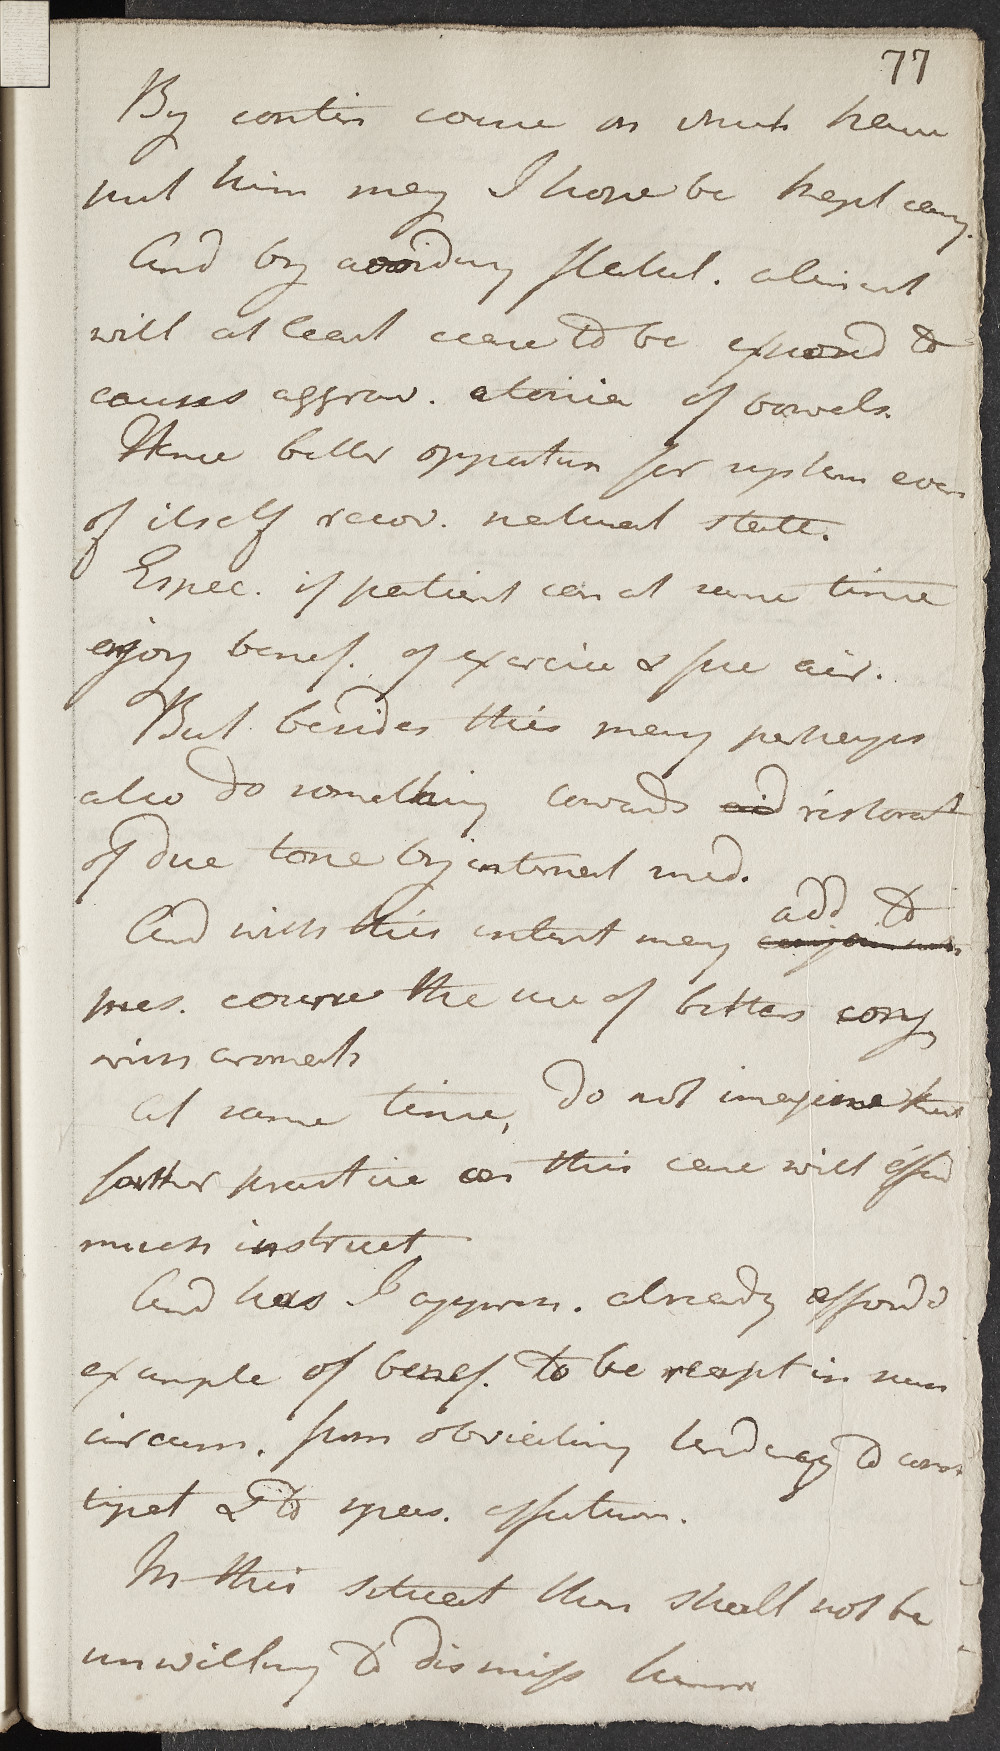 77
By contin course on which have
put him may I hope be kept easy.
And by avoiding flatul. aliment
will at least cease to be exposed to
causes aggrav. atonia of bowels.
Hence better opportun for system even
of itself recov. natural state.
Espec. if patient can at same time
enjoy benef. of exercise & free air.
But besides this may perhaps
also do something towards aid restorat
of due tone by internal med.
And with this intent may add to
pres. course the use of bitters conj
with aromats
At same time, do not imagine that
farther practice on this case will afford
much instruct
And has I apprehen. already afford'd
example of benef. to be reapt in such
circum. from obviating tendency to cons
tipat & to spas. affection.
In this situat then shall not be
unwilling to dismiss him